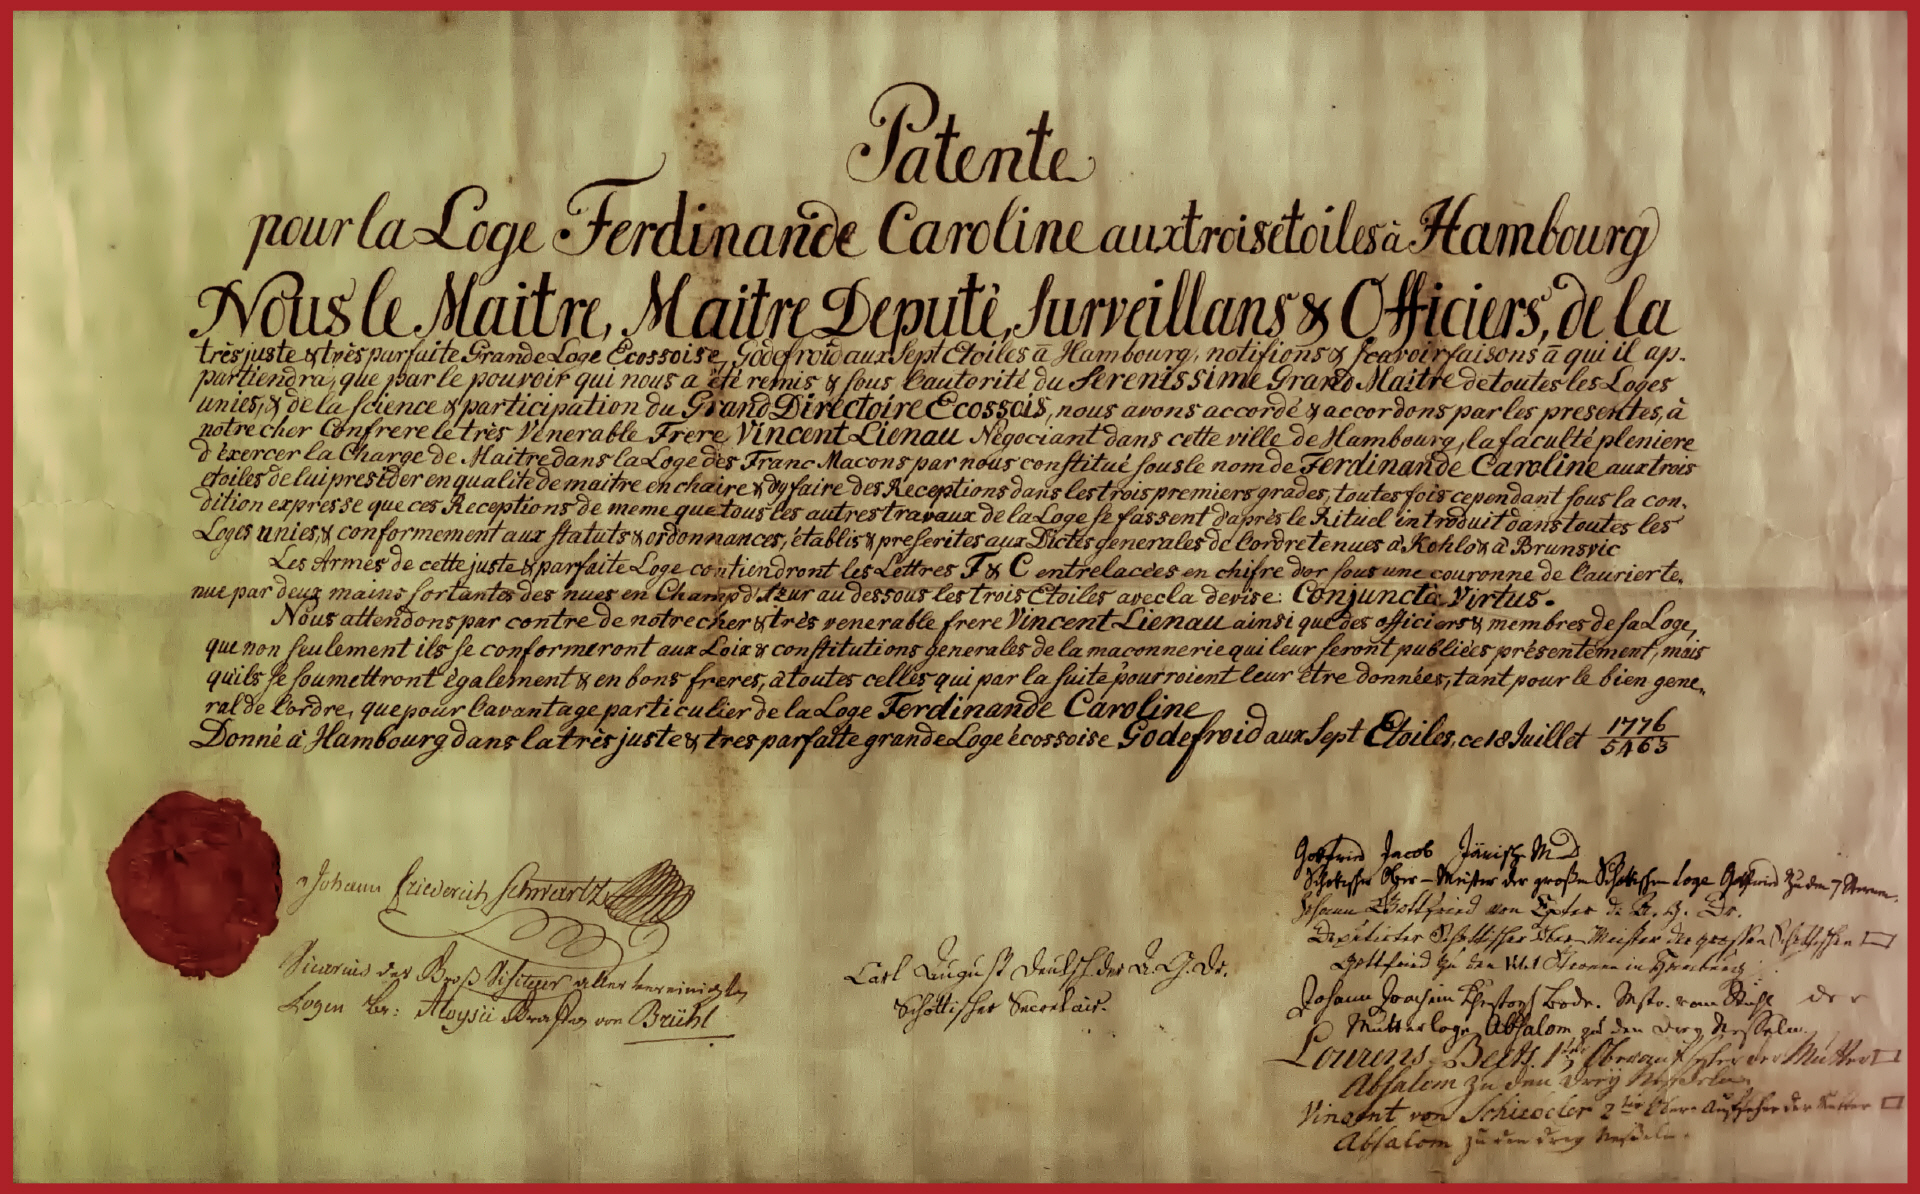 Patente
pour la Loge Ferdinande Caroline aux trois étoiles à Hambourg
Nous le Maitre, Maitre Deputé, Surveillans & Officiers, de la
très juste & très parfaite Grande Loge Ecossoise, Godefroid aux Sept Etoiles à Hambourg, notifions & scavoir faisons à qui il ap-
partiendra, que par le pouvoir qui nous a été remis & sous l'autorité du Serenissime Grand Maitre de toutes les Loges
unies, & de la science & participation du Grand Directoire Ecossois, nous avons accordé & accordons par les presentes, à
notre cher Confrere le très Venerable Frere, Vincent Lienau Négociant dans cette ville de Hambourg, la faculté pleniere
d'exercer la Charge de Maitre dans la Loge des Franc Macons par nous constitué sous le nom de Ferdinande Caroline aux trois
etoiles de lui presider en qualité de maitre en chaire & d'y faire des Receptions dans les trois premiers grades, toutes fois cependant sous la con-
dition expresse que ces Receptions de meme que tous les autres travaux de la Loge se fassent d'après le Rituel introduit dans toutes les
Loges unies, & conformement aux statuts & ordonnances, établis & prescrites aux Dietes generales de l'ordre tenues à Kohlo & à Brunsvic
Les Armes de cette juste & parfaite Loge contiendront les Lettres F & C entrelacées en chifre d'or sous une couronne de laurier te-
nue par deux mains sortantes des nues en Champ d'Azur au dessous les trois Etoiles avec la devise: Conjuncta Virtus.
Nous attendons par contre de notre cher & très venerable frere Vincent Lienau ainsi que des officiers & membres de sa Loge,
que non seulement ils se conformeront aux Loix & constitutions generales de la maconnerie qui leur seront publiées présentement, mais
qu'ils se soumettront également & en bons freres, à toutes celles qui par la suite pourroient leur être données, tant pour le bien gene-
ral de l'ordre, que pour l'avantage particulier de la Loge Ferdinande Caroline
Donné à Hambourg dans la très juste & tres parfaite grande Loge écossoise Godefroid aux Sept Etoiles, ce 18 Juillet 1776
5463
Johann Friederich Schwartz
Vicarius des Visitator aller vereinigten
Logen Br: Aloysii Grafen von Brühl
Carl August Deutsch der R. G. Dr.
Schottischer Secretair.
Gottfried Jacob Jänisch M D
Schottischer Ober-Meister der großen Schottischen Loge Gottfried zu den 7 Sternen.
Johann Gottfried von
Deputirter Schottischer Ober-Meister der grossen Schottischen
Gottfried zu den Sternen in Hamburg
Johann Joachim Christoph Bode. Mstr. vom Stuhl der
Mutterloge Absalom zu den drey Nesseln.
Lourens Beets 1ster Oberaufseher der Mutter
Absalom zu den drey Nesseln
Vincent von Schieveler 2ter Ober Aufseher der Mutter
Absalom zu den drey Nesseln.